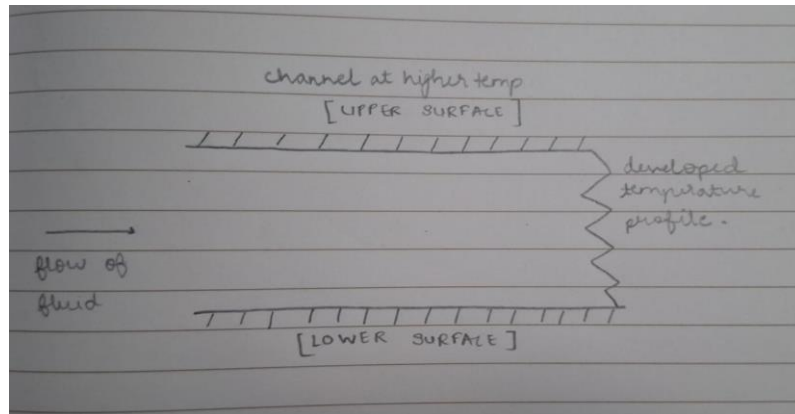 channel at higher temp
[UPPER SURFACE]
developed
temperature
profile.
flow of
fluid
[LOWER SURFACE]